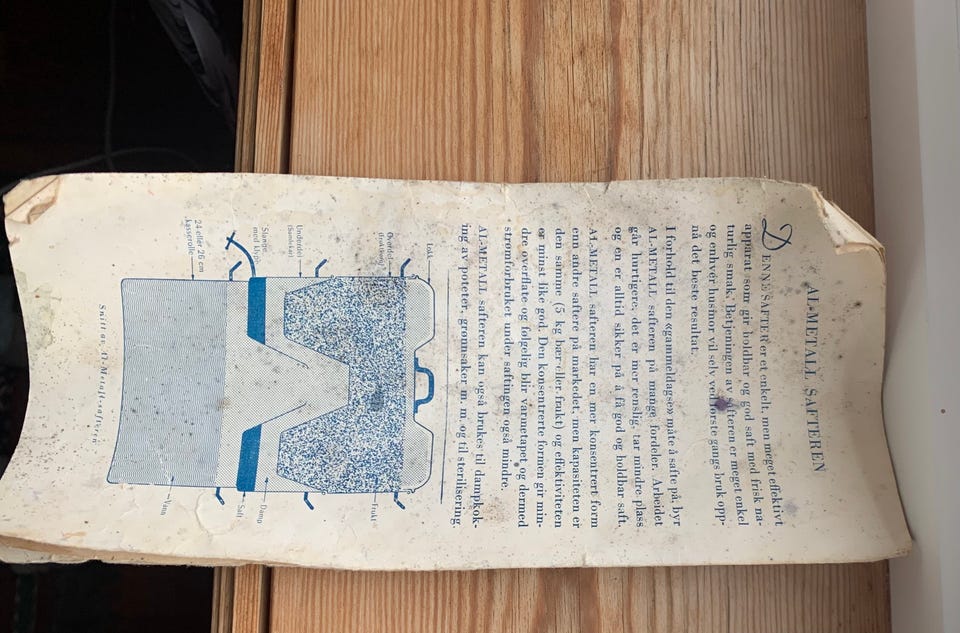 AL-METALL SAFTEREN
DENNE SAFTER er et enkelt, men meget effektivt
apparat som gir holdbar og god saft med frisk na-
turlig smak. Betjeningen av safteren er meget enkel
og enhver husmor vil selv ved første gangs bruk opp-
nå det beste resultat.
I forhold til den «gammeldags» måte å safte på, byr
AL-METALL safteren på mange fordeler. Arbeidet
går hurtigere, det er mer renslig, tar mindre plass
og en er alltid sikker på å få god og holdbar saft.
AL-METALL safteren har en mer konsentrert form
enn andre saftere på markedet, men kapasiteten er
den samme (5 kg bær eller frukt) og effektiviteten
er minst like god. Den konsentrerte formen gir min-
dre overflate og følgelig blir varmetapet og dermed
strømforbruket under saftingen også mindre.
AL-METALL safteren kan også brukes til dampkok-
ing av poteter, grønnsaker m. m. og til sterilisering.
Lokk
Overdel
Underdel
Slange
med klype
24 eller 26 cm
kasserolle
Frukt
Damp
Saft
Vann
Snitt av Al-Metall-safteren